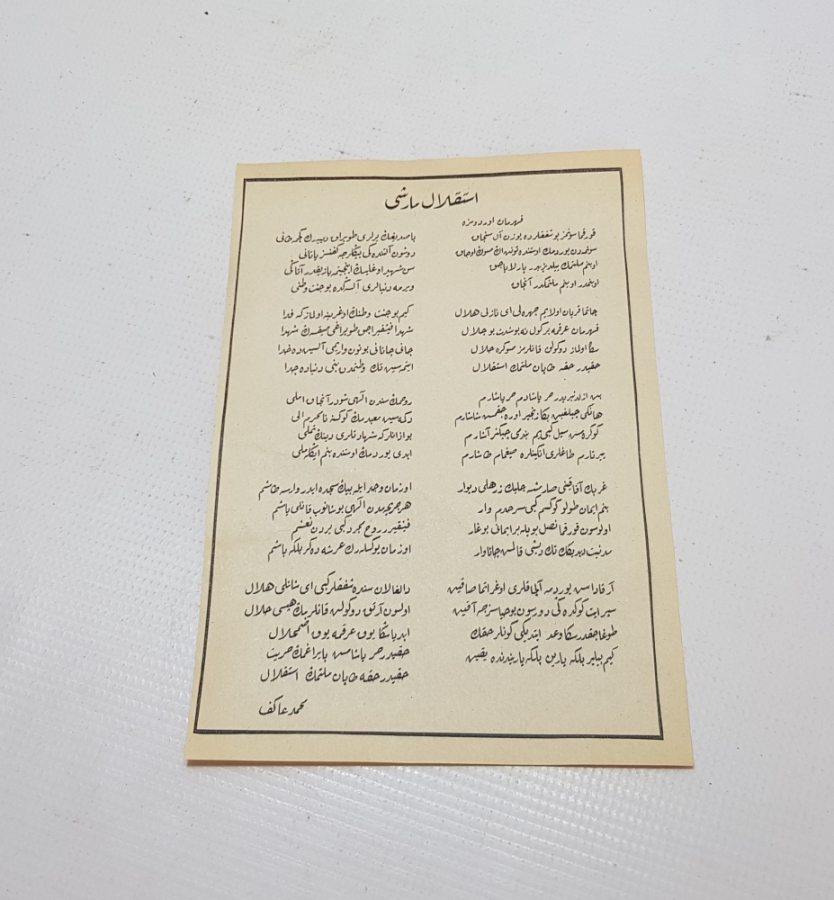 استقلال مارشى
قهرمان اوردومزه
قورقما سونمز بو شفقلرده يوزن آل سنجاق
سونمدن يوردمك اوستنده توتن اڭ صوڭ اوجاق
او بنم ملتمك ييلديزيدر پارلاياجق
او بنمدر او بنم ملتمكدر آنجاق
چاتما قربان اولايم چهره‌ڭى اى نازلى هلال
قهرمان عرقمه بر كول نه بو شدت بو جلال
سڭا اولماز دوكولن قانلرمز صوكره حلال
حقيدر حقه طاپان ملتمك استقلال
بن ازلدنبريدر حر ياشادم حر ياشارم
هانكى چيلغين بڭا زنجير اوره‌جقمش شاشارم
كوكره‌مش سيل كبى‌يم بندمى چيكنر آشارم
ييرتارم طاغلرى انكينلره صيغمام طاشارم
غربك آفاقنى صارمشسه چليك زرهلى ديوار
بنم ايمان طولو كوكسم كبى سرحدم وار
اولوسون قورقما نصل بويله بر ايمانى بوغار
مدنيت ديديكك تك ديشى قالمش جاناوار
آرقاداش يوردمه آلچاقلرى اوغراتما صاقين
سپر ايت كوكده‌كى دورسون بو حياسزجه آقين
طوغاجقدر سڭا وعد ايتديكى كونلر حقك
كيم بيلير بلكه يارين بلكه ياريندنده يقين
باصديغك يرلرى طوپراق دييه‌رك كچمه طانى
دوشون آلتنده‌كى بيڭلرجه كفنسز ياتانى
سن شهيد اوغليسك اينجيتمه يازيقدر آتاڭى
ويرمه دنيالرى آلسه‌ڭده بو جنت وطنى
كيم بو جنت وطنك اوغرينه اولماز كه فدا
شهدا فيشقيراجق طوپراغى صيقسه‌ڭ شهدا
جانى جانانى بوتون واريمى آلسين ده خدا
ايتمه‌سين تك وطنمدن بنى دنياده جدا
روحمك سندن الهى شودر آنجاق املى
دكمه‌سين معبدمك كوكسنه نامحرم الى
بو اذانلر كه شهادتلرى دينك تملى
ابدى يوردمك اوستنده بنم ايڭله‌ملى
او زمان وجد ايله بيڭ سجده ايدر وارسه طاشم
هر جريحه‌مدن الهى بوشانوب قانلى ياشم
فيشقيرر روح مجرد كبى يردن نعشم
او زمان يوكسله‌رك عرشه دكر بلكه باشم
دالغالان سنده شفقلر كبى اى شانلى هلال
اولسون آرتق دوكولن قانلرمك هپسى حلال
ابديا سڭا يوق عرقمه يوق اضمحلال
حقيدر حر ياشامش بايراغمك حريت
حقيدر حقه طاپان ملتمك استقلال
محمد عاكف